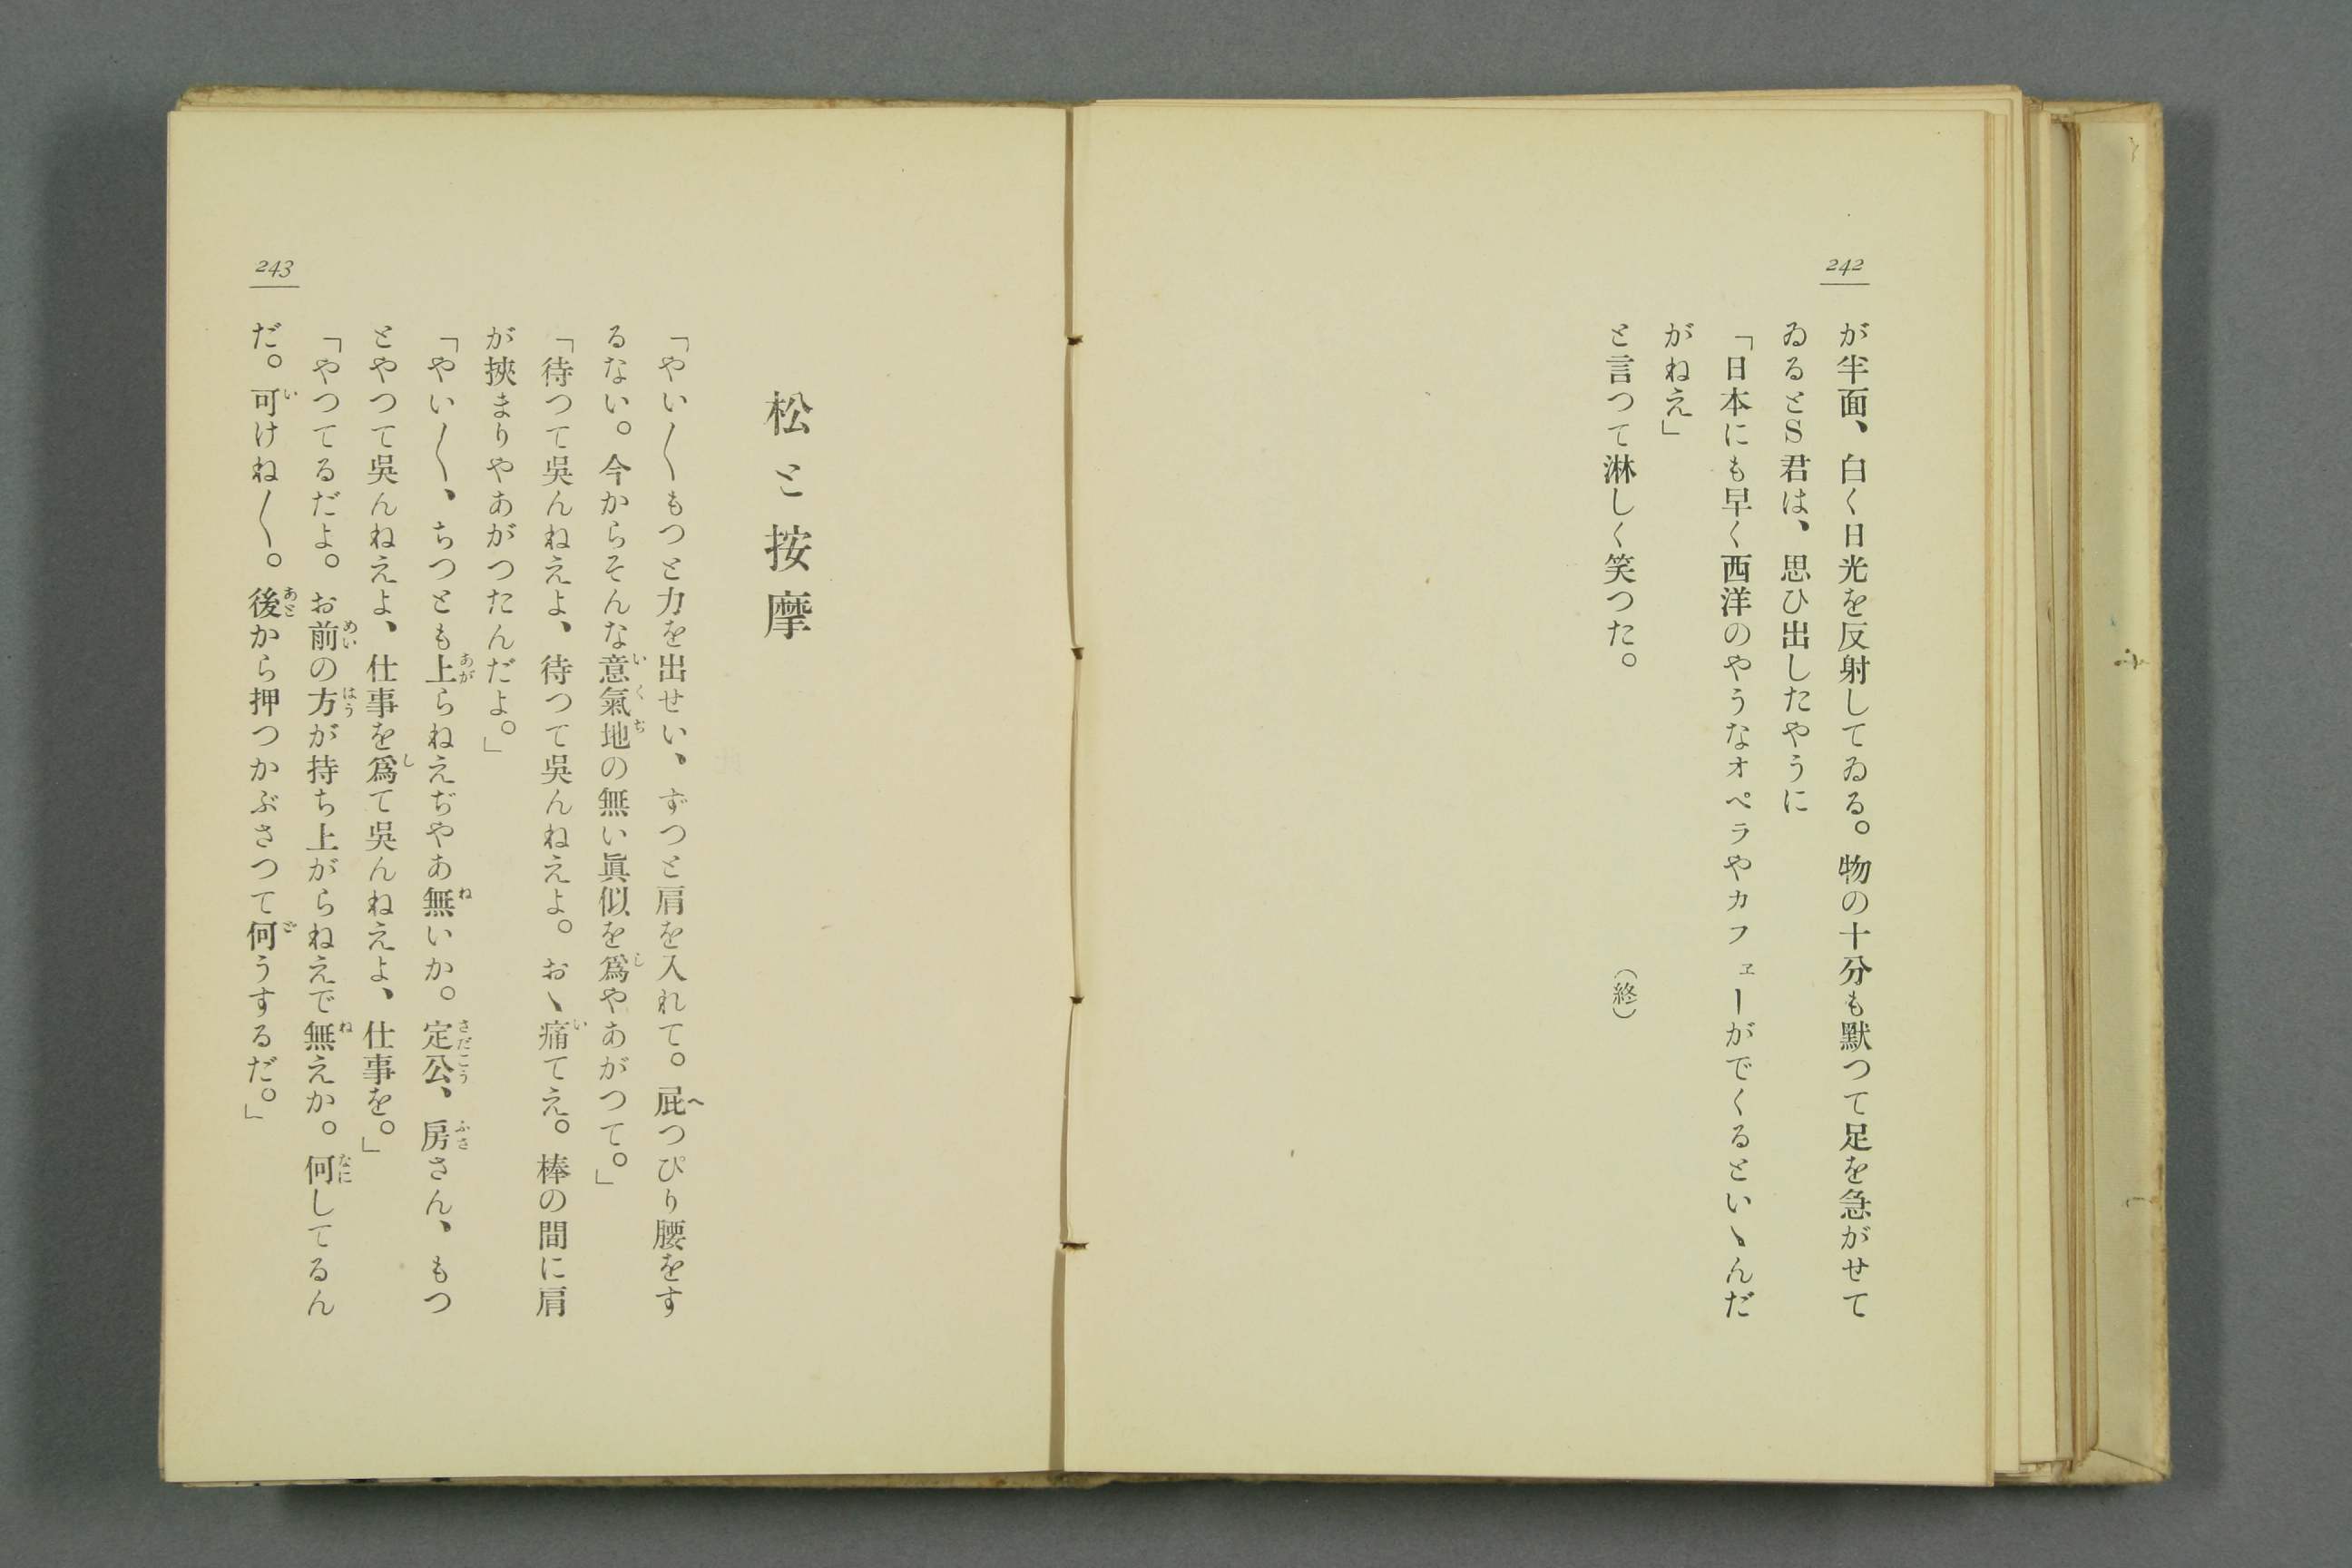 242
が半面、白く日光を反射してゐる。物の十分も默つて足を急がせて
ゐるとS君は、思ひ出したやうに
「日本にも早く西洋のやうなオペラやカフェーがでくるといゝんだ
がねえ」
と言つて淋しく笑つた。
（終）
松と按摩
「やい〳〵もつと力を出せい、ずつと肩を入れて。屁つぴり腰をす
るない。今からそんな意氣地の無い眞似を爲やあがつて。」
「待つて吳んねえよ、待つて吳んねえよ。おゝ痛てえ。棒の間に肩
が挾まりやあがつたんだよ。」
「やい〳〵、ちつとも上らねえぢやあ無いか。定公、房さん、もつ
とやつて吳んねえよ、仕事を爲て吳んねえよ、仕事を。」
「やつてるだよ。お前の方が持ち上がらねえで無えか。何してるん
だ。可けね〳〵。後から押つかぶさつて何うするだ。」
243